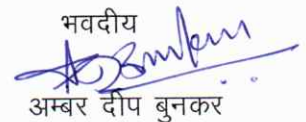 भवदीय
अम्बर दीप बुनकर